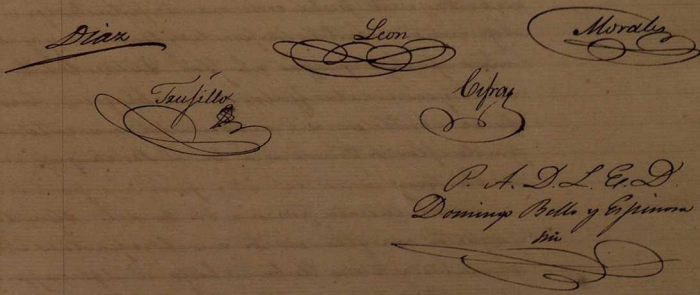 Diaz Leon Morales
Trujillo Cifra
P. A. D. L. E. D
Domingo Bello y Espinosa